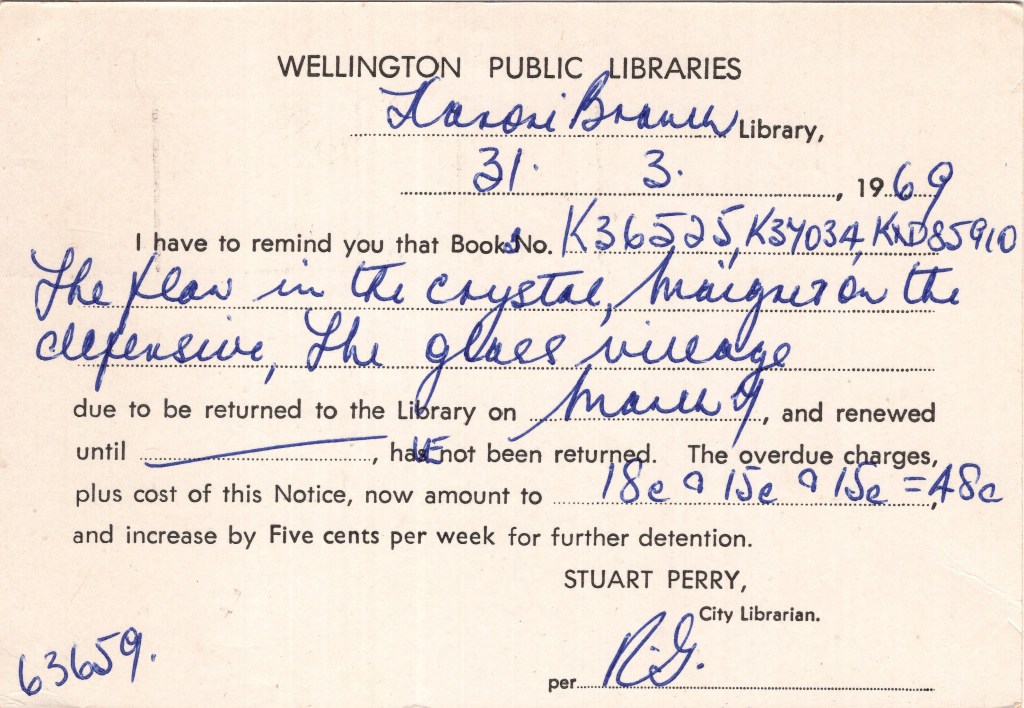 WELLINGTON PUBLIC LIBRARIES
Karori Branch Library,
31. 3. , 1969
I have to remind you that Books No. K36525, K37034, KND85910
The flaw in the crystal, Maigret on the
defensive, The glass village
due to be returned to the Library on March 9, and renewed
until , haVE not been returned. The overdue charges,
plus cost of this Notice, now amount to 18c a 15c a 15c = 48c
and increase by Five cents per week for further detention.
STUART PERRY,
City Librarian.
per R.G.
63659.